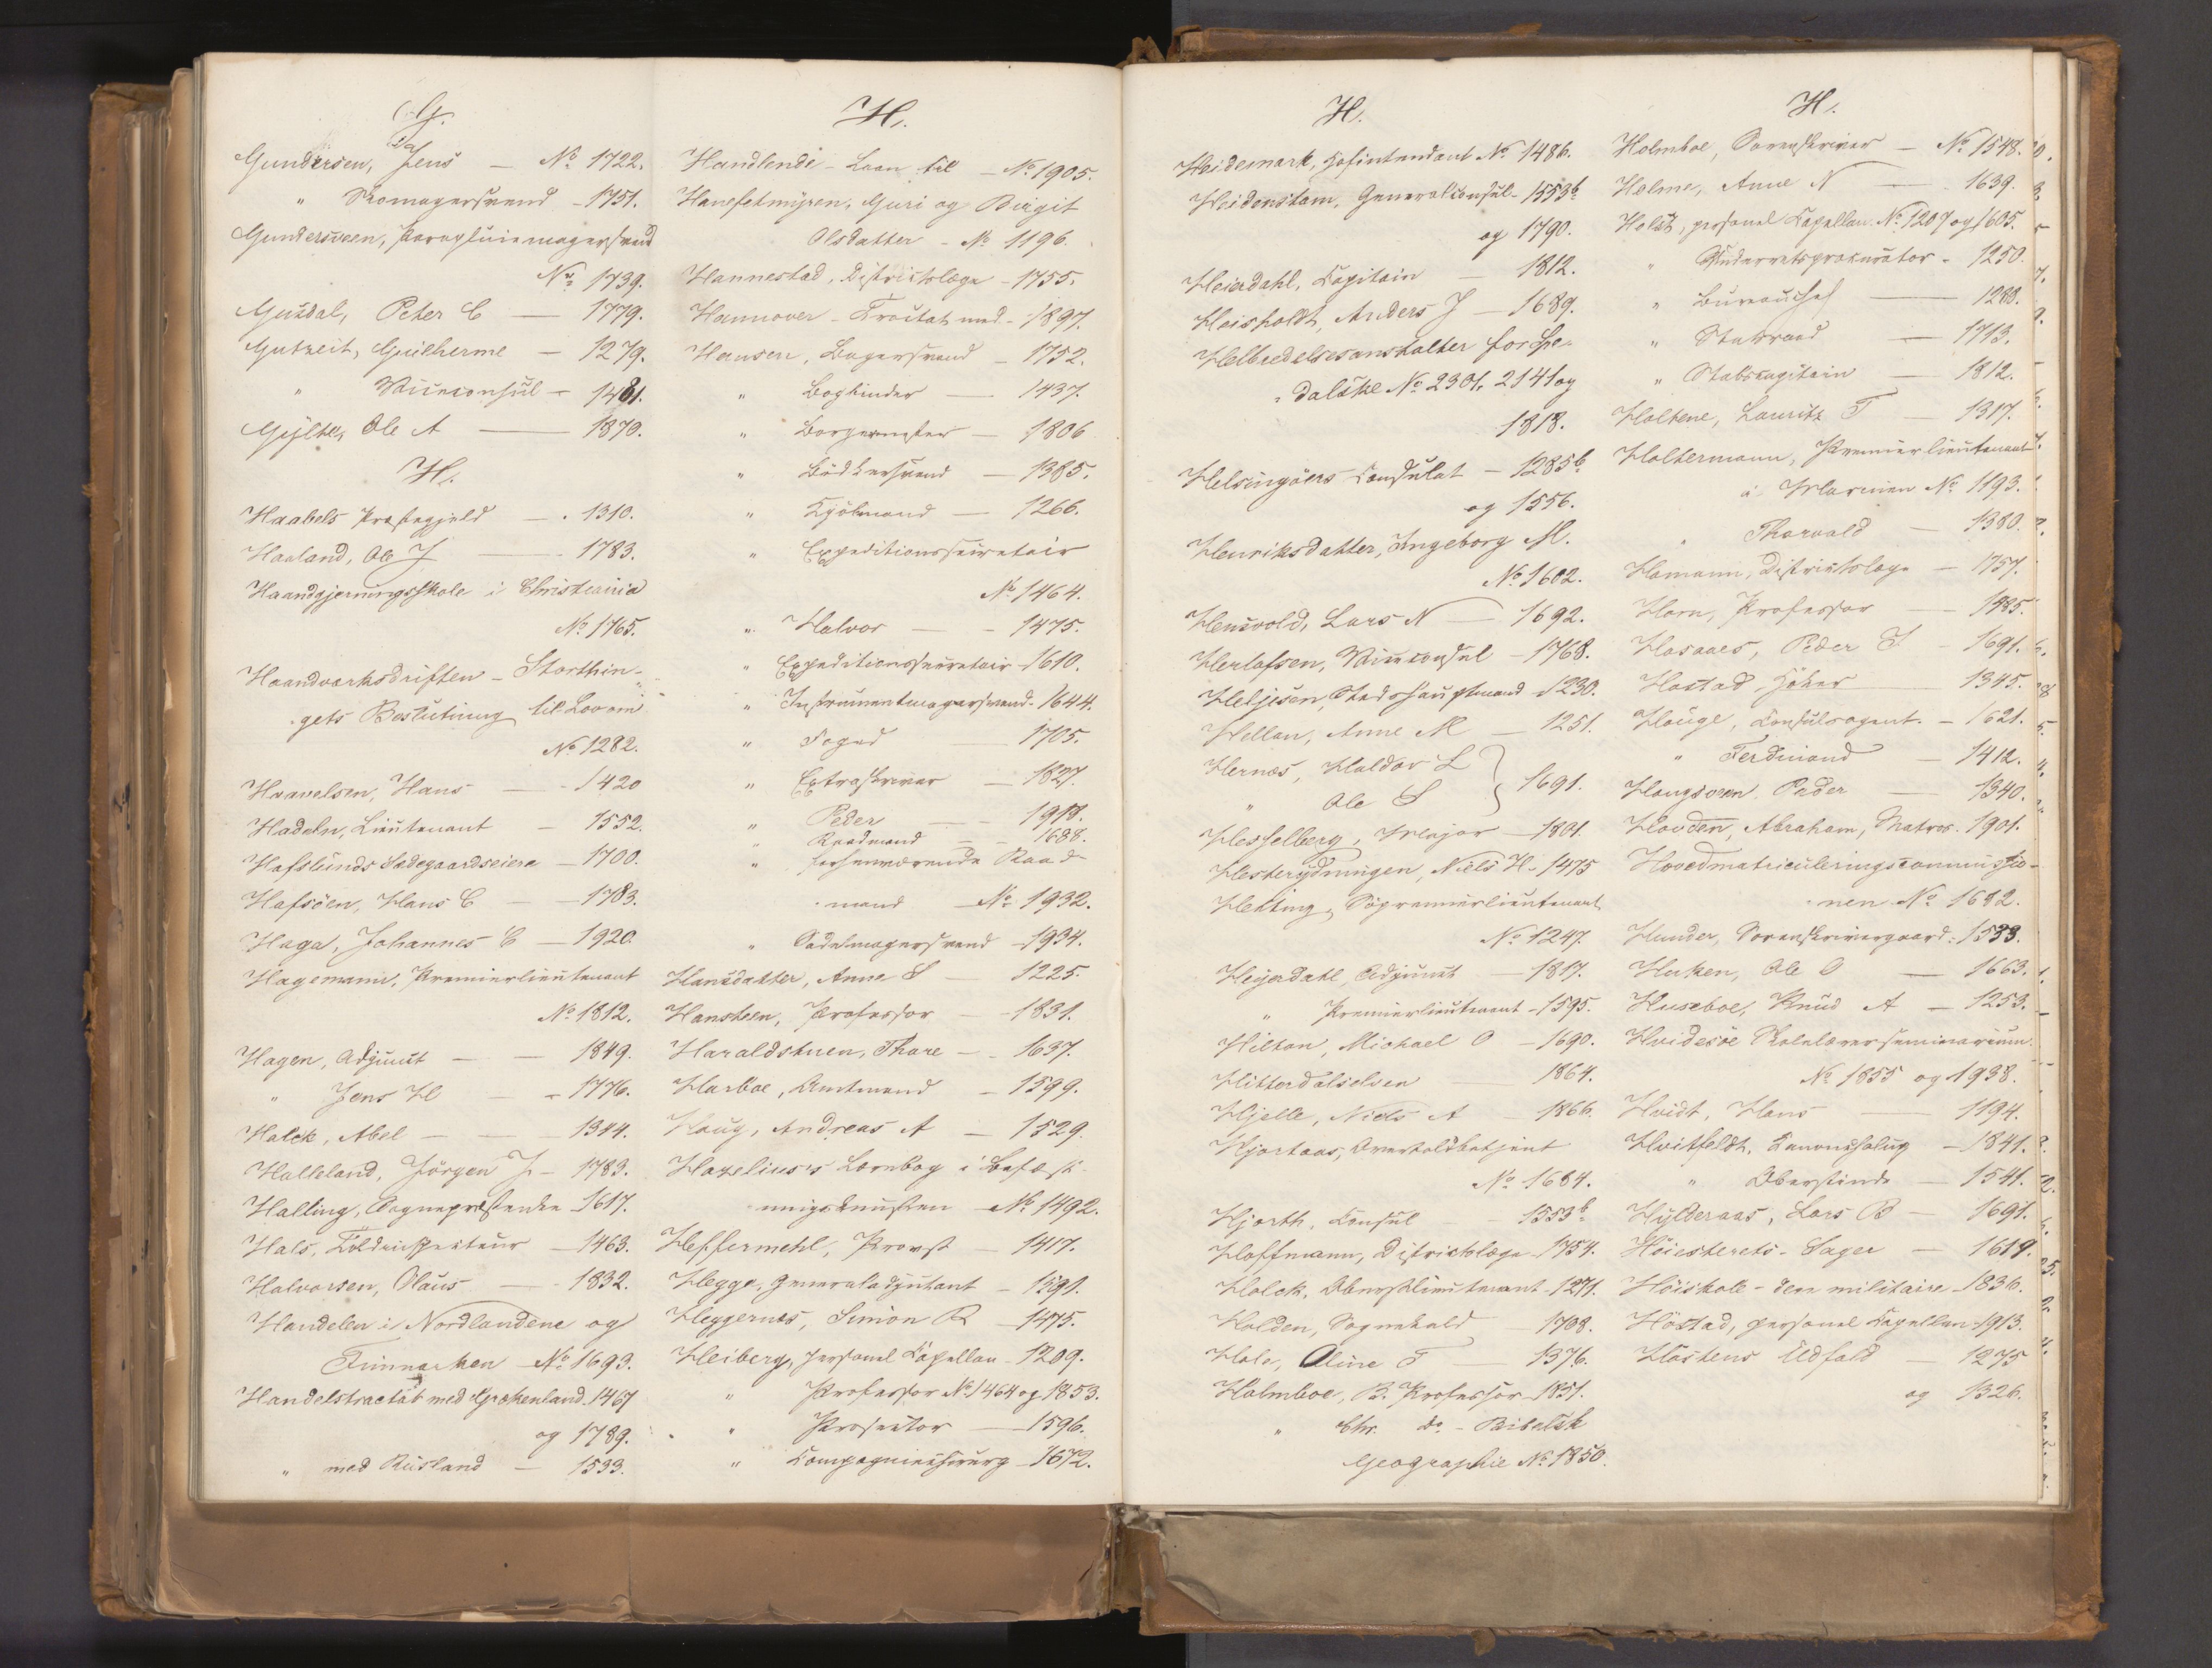 G.
Gundersen, Jens — No 1722.
" Skomagersvend - 1751.
Gundersveen, Parapluiemagersvend
No 1739.
Gusdal, Peter C — 1779.
Gutzeit, Guilherme — 1279.
" Viceconsul — 1481.
Gylthe, Ole A — 1870.
H.
Haabels Præstegjeld — 1310.
Haaland, Ole J — 1783.
Haandgjerningsskole i Christiania
No 1765.
Haandværksdriften - Storthin-
gets Beslutning til Lov om
No 1282.
Haavelsen, Hans — 1420
Hadeln, Lieutenant — 1552.
Hafslunds Sædegaardseiere — 1700.
Hafsöen, Hans C — 1783.
Haga, Johannes C — 1920.
Hagemann, Premierlieutenant
No 1812.
Hagen, Adjunct — 1849.
" Jens H — 1776.
Halck, Abel — 1344.
Halleland, Jörgen J — 1783.
Halling, Sognepræstenke - 1617.
Hals, Toldinspecteur — 1463.
Halvorsen, Olaus — 1832.
Handelen i Nordlandene og
Finmarken — No 1693.
Handelstractat med Grækenland. 1467
og 1789.
" med Rusland — 1533.
H.
Handlende - Laan til — No 1905.
Hanefetmyren, Guri og Birgit
Olsdatter - No 1196.
Hannestad, Districtslæge - 1755.
Hannover - Tractat med - 1897.
Hansen, Bagersvend — 1752.
" Bogbinder — 1437.
" Borgermester — 1806
" Bödkersvend — 1385.
" Kjöbmand — 1266.
" Expeditionssecretair
No 1464.
" Halvor — 1475.
" Expeditionssecretair - 1610.
" Instrumentmagersvend - 1644.
" Foged — 1705.
" Extraskriver — 1827.
" Peder — 1918.
" Raadmand — 1688.
" forhenværende Raad-
mand — No 1932.
" Sadelmagersvend — 1934.
Hansdatter, Anne S — 1225.
Hansteen, Professor — 1831.
Haraldstuen, Thore — 1637.
Harboe, Amtmand — 1599.
Haug, Andreas A — 1529.
Hazelius's Lærebog i Befæst-
ningskunsten — No 1492.
Heffermehl, Provst — 1417.
Hegge, Generaladjutant — 1591.
Heggernæs, Simon R — 1475.
Heiberg, personel Capellan — 1209.
" Professor No 1464 og 1853.
" Prosector — 1596.
" Compagniechirurg — 1672.
H.
Heidemark, Hofintendant No 1486.
Heidenstam, Generalconsul - 1553b
og 1790.
Heierdahl, Capitain — 1812.
Heisholdt, Anders J — 1689.
Helbredelsesanstalter for Spe-
dalske No 2301, 2141 og
1818.
Helsingöers Consulat — 1285b
og 1556.
Henriksdatter, Ingeborg M.
No 1602.
Hensvold, Lars N — 1692.
Herlofsen, Viceconsul — 1768.
Heltjesen, Stadshauptmand - 1230.
Hellan, Anne M — 1251.
Hernæs, Haldor L } 1691.
" Ole S
Hesselberg, Major — 1801.
Hesterydningen, Niels H. - 1475
Hetting, Söpremierlieutenant
No 1247.
Heyerdahl, Adjunct — 1817.
" Premierlieutenant - 1595.
Hiltan, Michael O — 1690.
Hitterdalselven 1864.
Hjelle, Niels A — 1866.
Hjortaas, Overtoldbetjent
No 1684.
Hjorth, Consul — 1553b
Hoffmann, Districtslæge - 1754.
Holck, Oberstlieutenant - 1271.
Holden, Sognekald — 1708.
Hole, Oline T — 1376.
Holmboe, B. Professor - 1851.
" Chr. do - Bibelsk
Geographie No 1850.
H.
Holmboe, Sorenskriver — No 1548.
Holme, Anne N — 1639.
Holst, personel Capellan No 1207 og 1605.
" Underretsprocurator - 1250.
" Bureauchef — 1280.
" Statsraad — 1713.
" Stabscapitain — 1812.
Holtene, Lauritz T — 1317.
Holtermann, Premierlieutenant
i Marinen No 1193.
" Thorvald — 1380.
Homann, Districtslæge — 1757.
Horn, Professor — 1485.
Hosaaes, Peder S — 1691.
Hostad, Höker 1345.
Houge, Consulsagent. — 1621.
" Ferdinand — 1412.
Hougsoren Peder — 1340.
Hovden, Abraham, Matros. 1901.
Hovedmatriculeringscommissio-
nen No 1682.
Hunder, Sorenskrivergaard: 1533.
Husken, Ole O — 1663.
Huseboe, Knud A — 1253.
Hvidesöe Skolelærerseminarium.
No 1855 og 1938.
Hvidt, Hans — 1194.
Hvitfeldt, Canonchalup — 1841.
" Oberstinde — 1541.
Hylderaas, Lars B — 1691.
Höiesterets-Sager — 1619.
Höiskole - den militaire 1836.
Höstad, personel Capellan - 1913.
Höstens Udfald — 1275
og 1326.